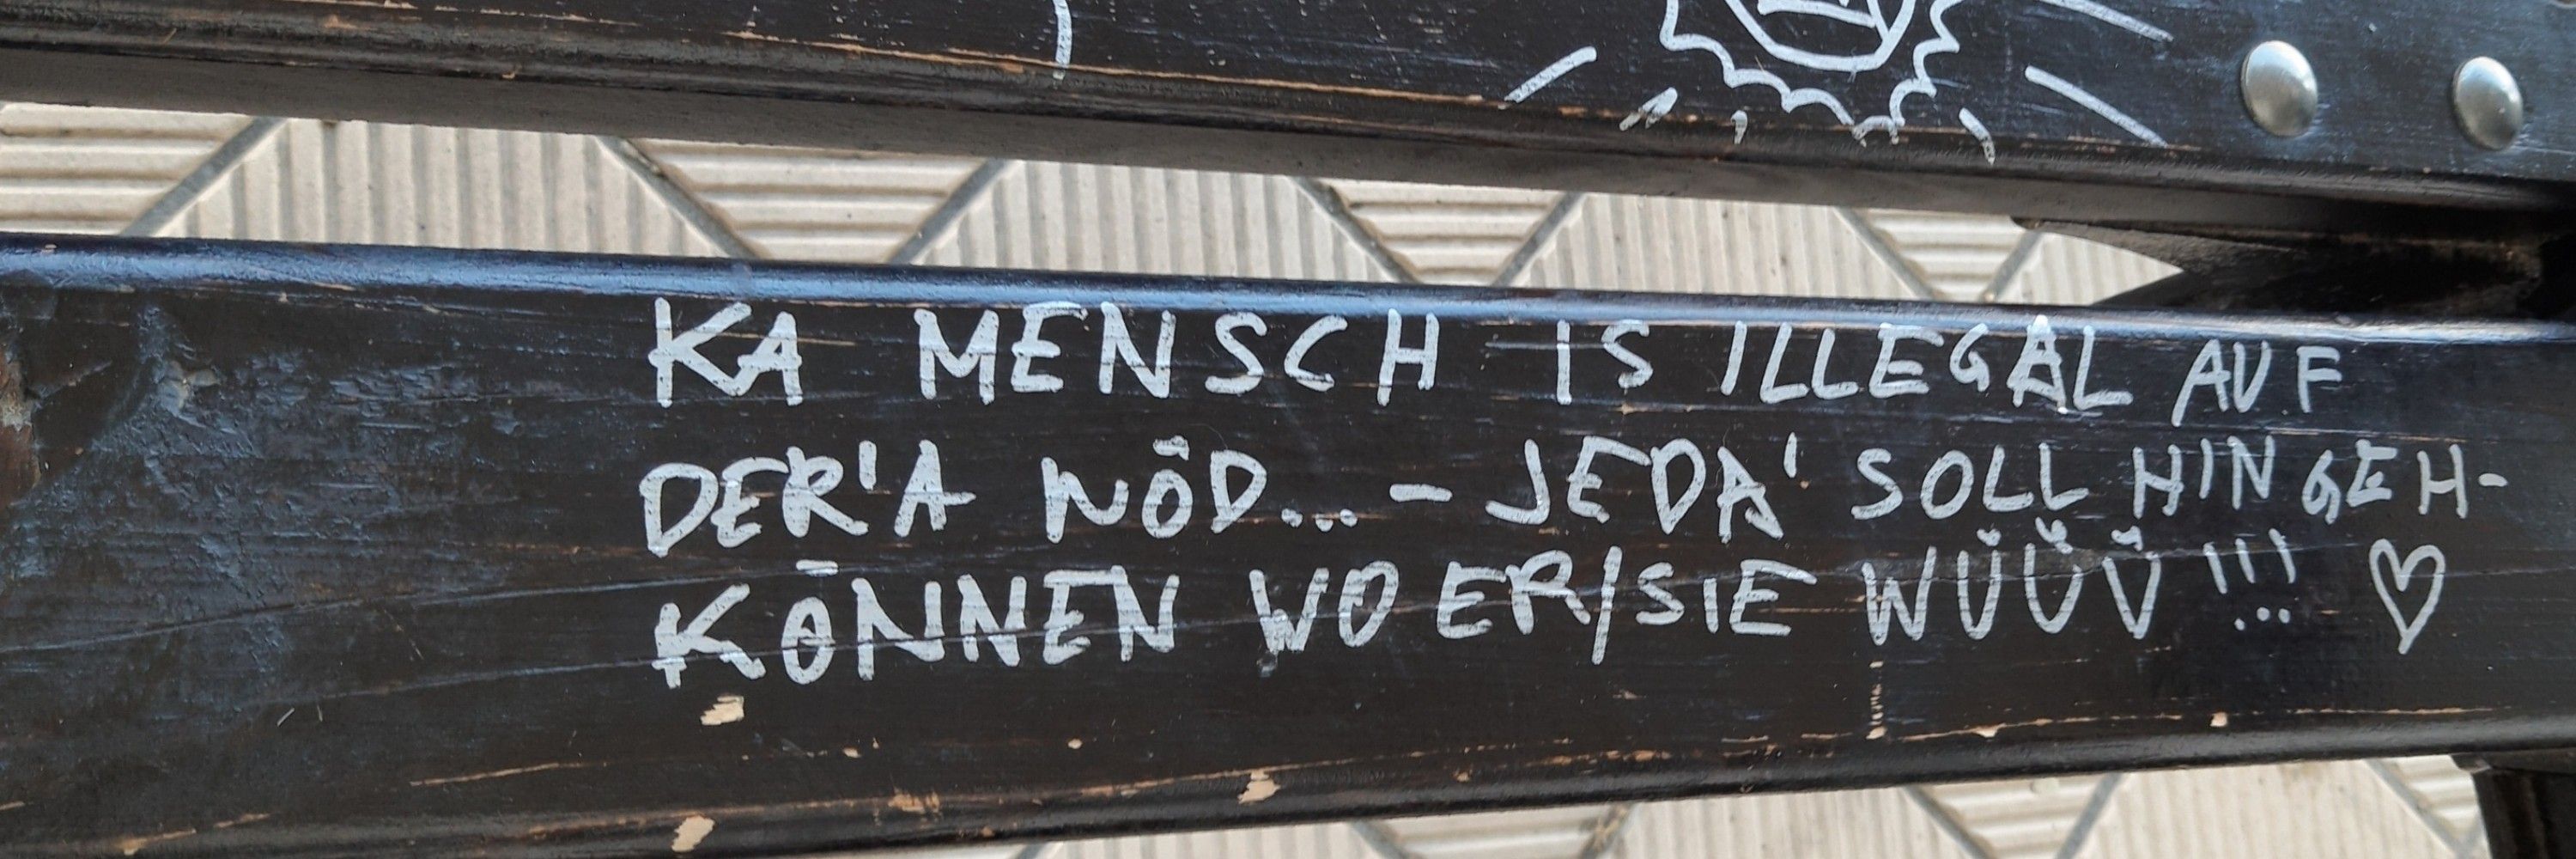 KA MENSCH IS ILLEGAL AUF
DER'A WÖD... - JEDA' SOLL HINGEH-
KÖNNEN WO ER/SIE WÜÜÜ!!! ♡